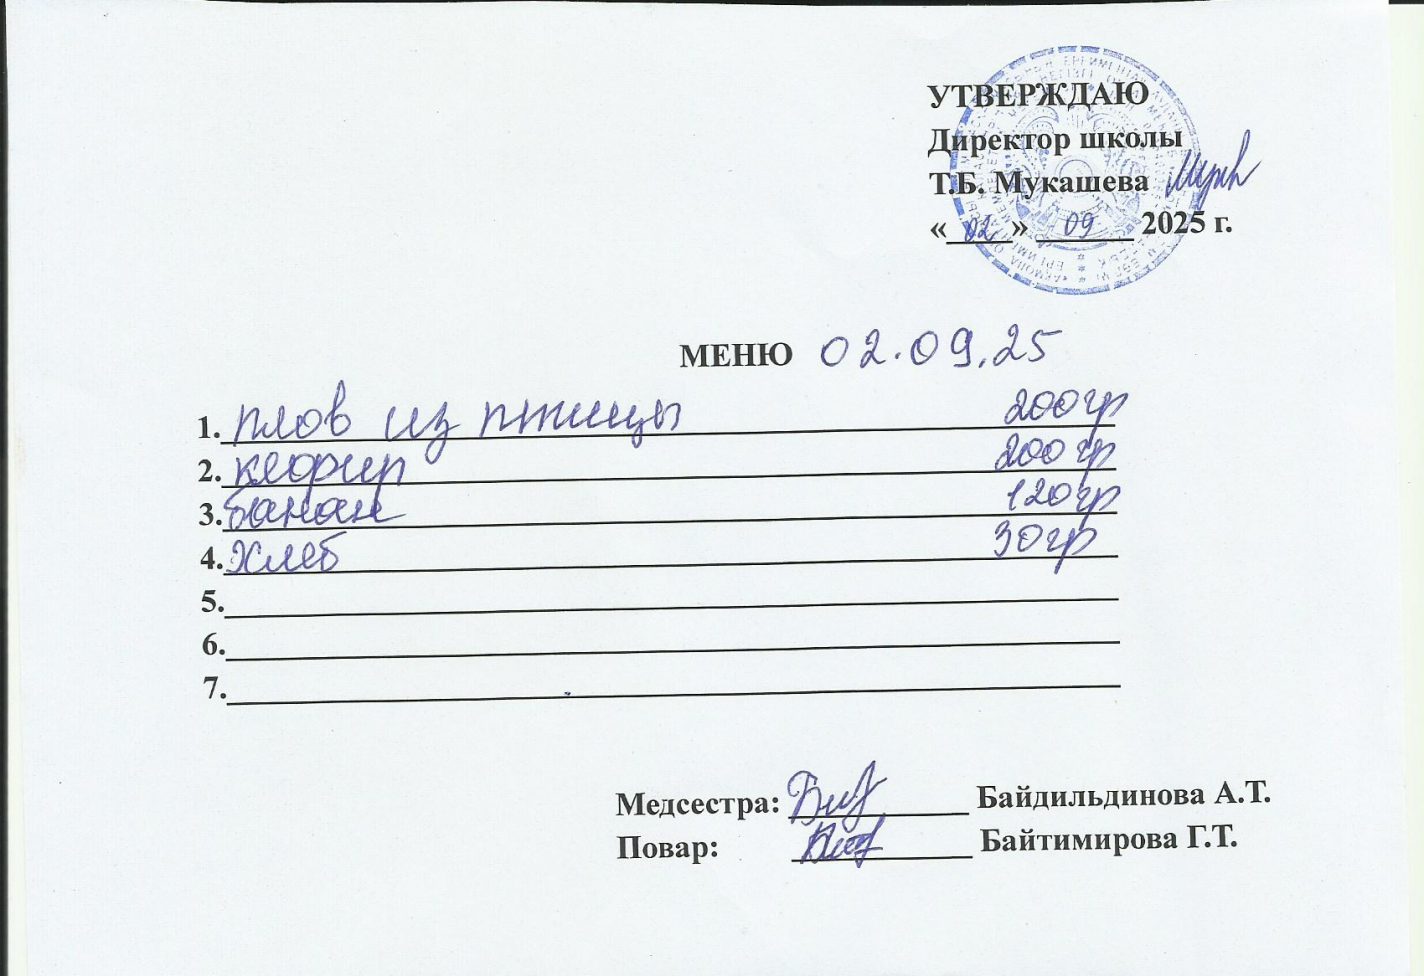 УТВЕРЖДАЮ
Директор школы
Т.Б. Мукашева
«02» 09 2025 г.
МЕНЮ 02.09.25
1. плов из птицы 200гр
2. кефир 200 гр
3. банан 120гр
4. хлеб 30гр
5.
6.
7.
Медсестра: Байдильдинова А.Т.
Повар: Байтимирова Г.Т.